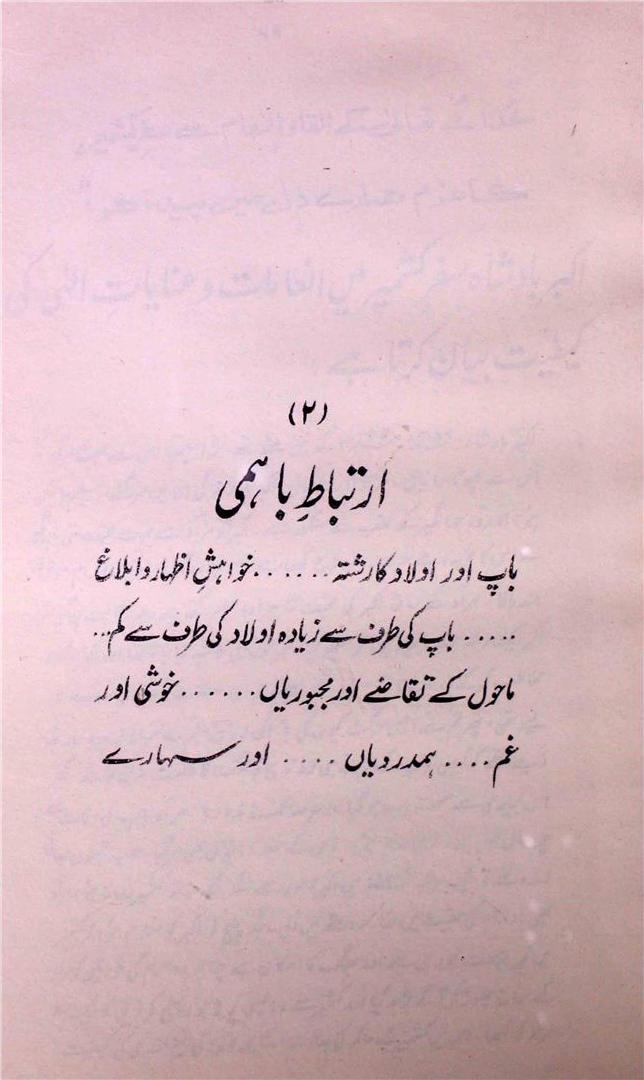 (۲)
ارتباطِ باہمی
باپ اور اولاد کا رشتہ......خواہشِ اظہار و ابلاغ
.....باپ کی طرف سے زیادہ اولاد کی طرف سے کم...
ماحول کے تقاضے اور مجبوریاں......خوشی اور
غم....ہمدردیاں.....اور سہارے